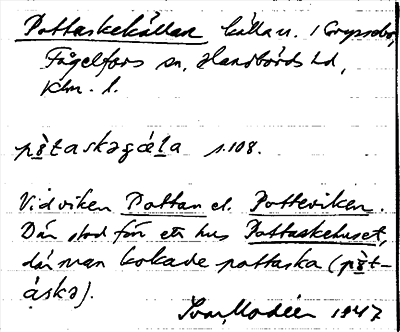 Pottaskekällan källa n. i Gryssebo,
Fågelfors sn, Handbörds hd,
Klm. l.
pò̤taskəgä́l̲a s. 108.
Vid viken Pottan el. Potteviken.
Där stod förr ett hus Pottaskehuset,
där man kokade pottaska (pò̤t-
áskə).
Ivar Modéer 1947